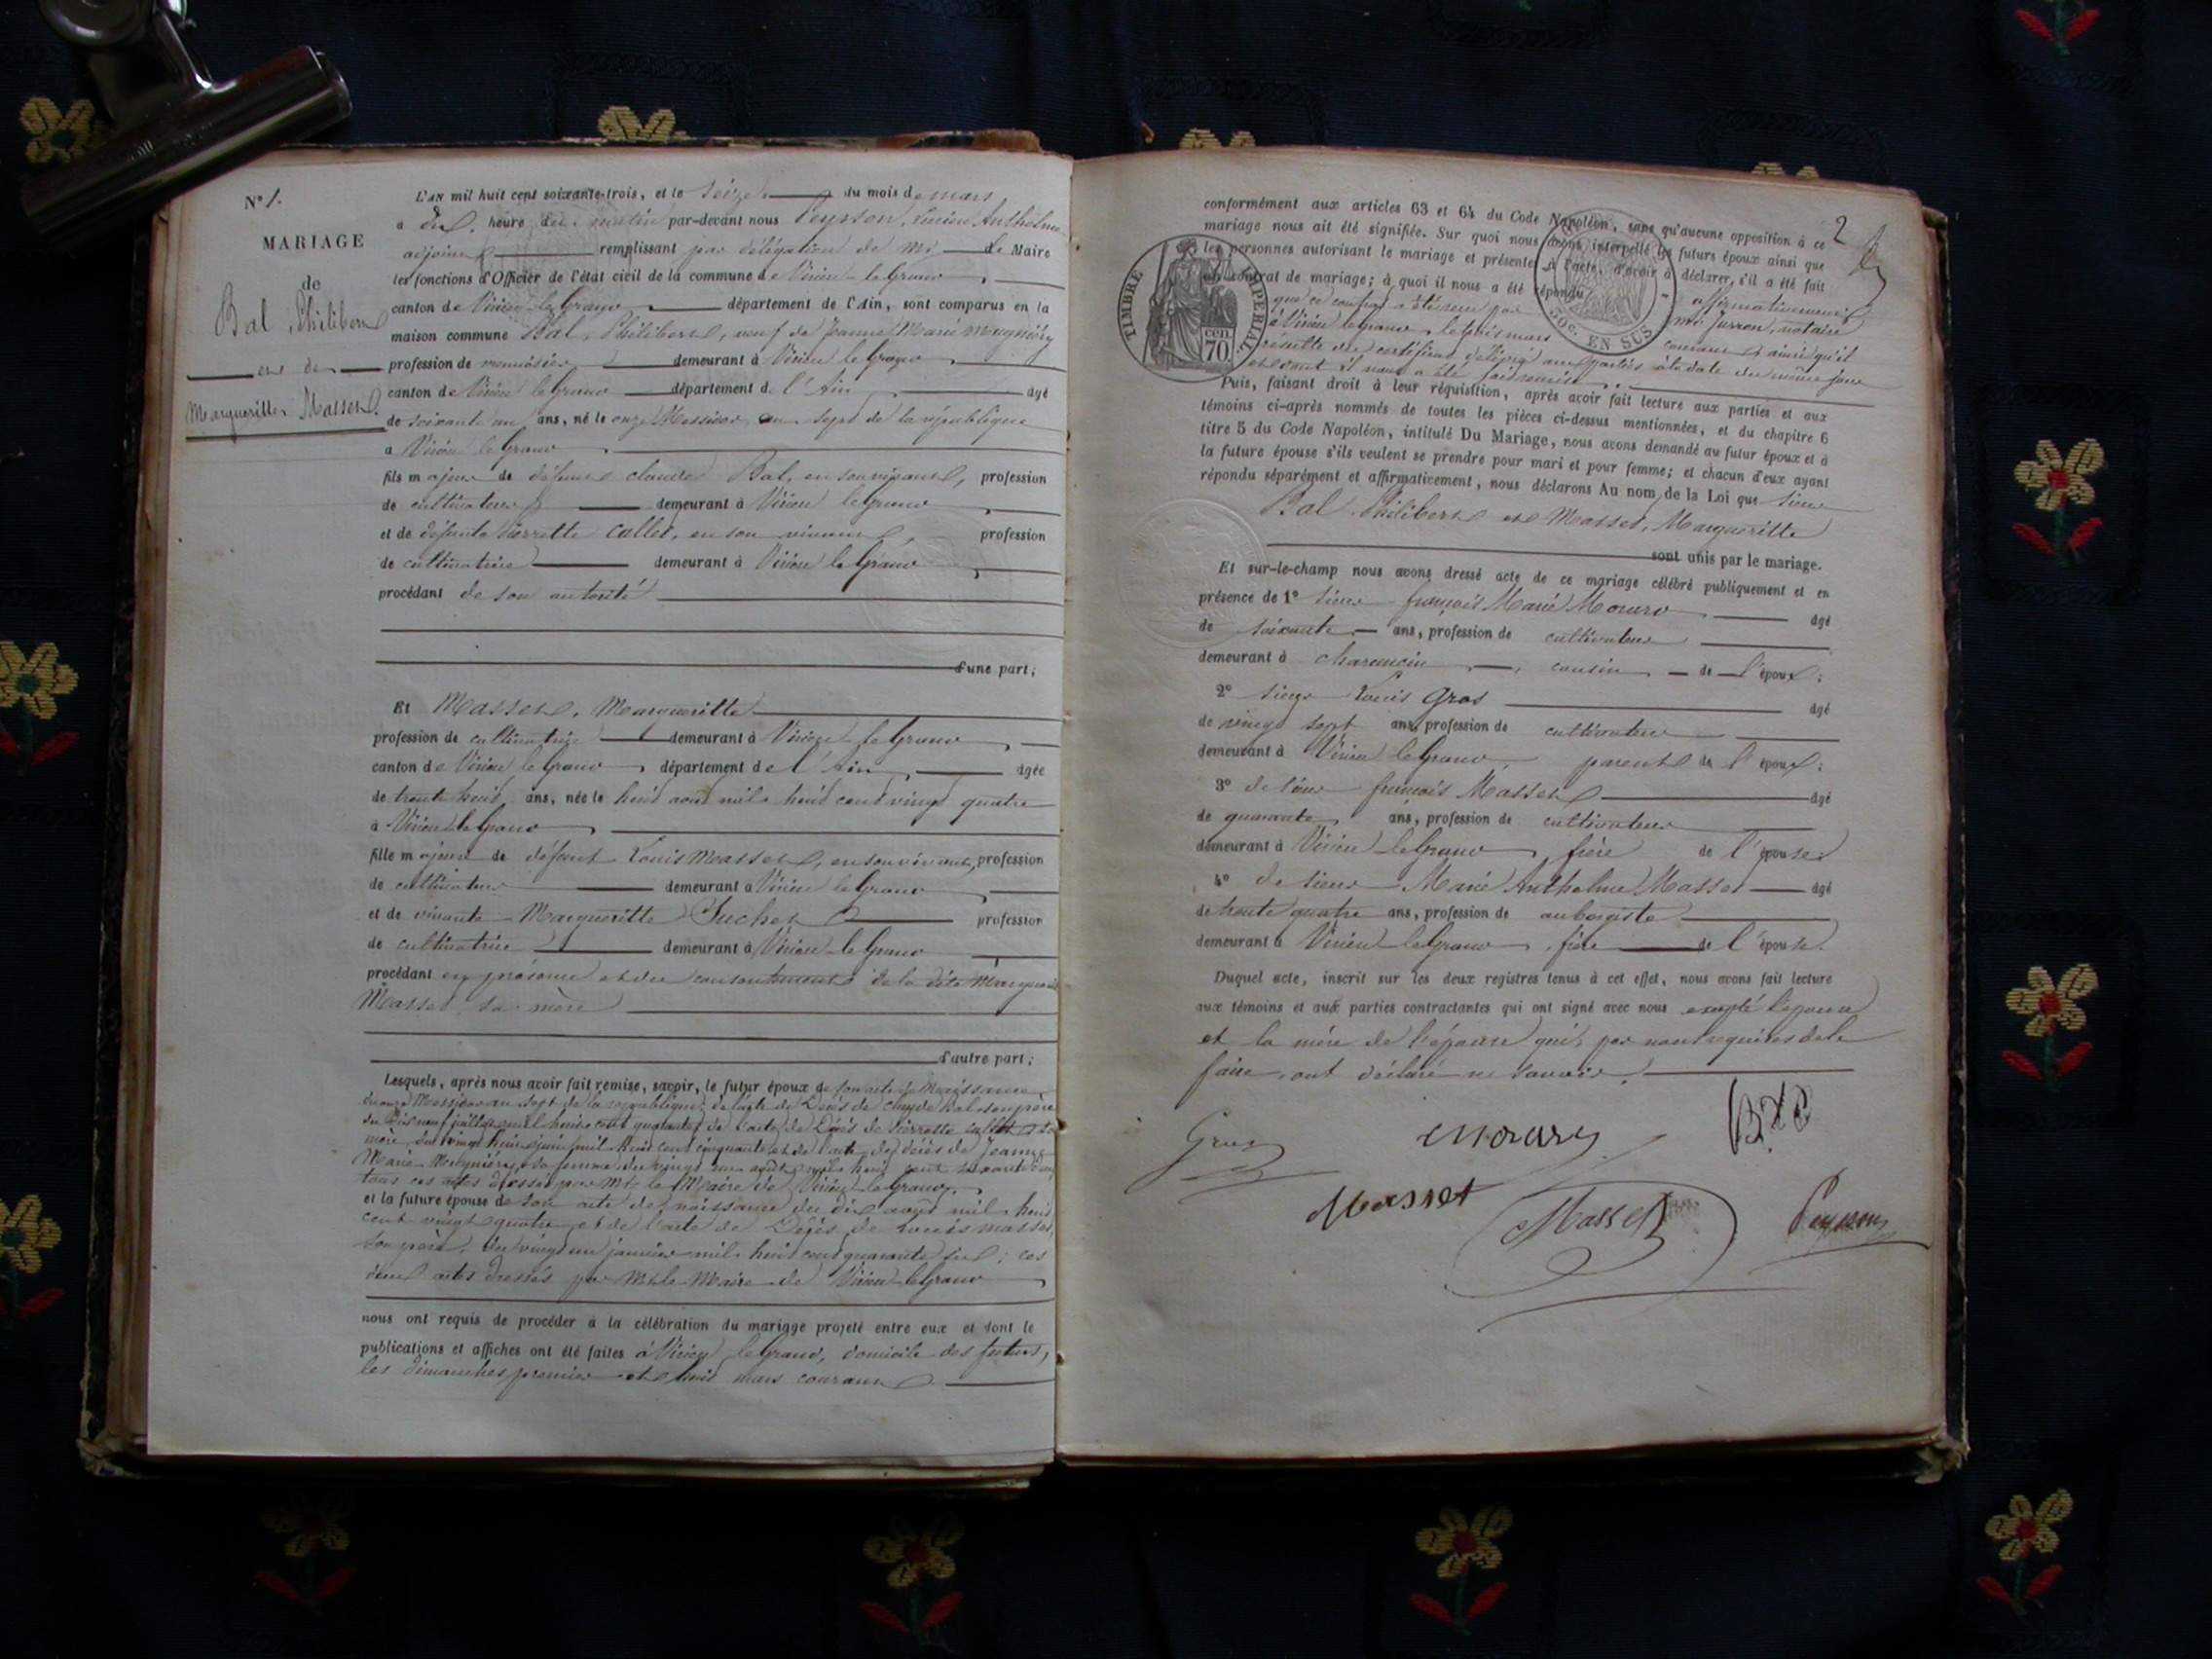 N° 1.
MARIAGE
de
Bal, Philibert
et de
Margueritte Masset.
L'AN mil huit cent soixante-trois, et le seize du mois de mars
à dix heure du matin par-devant nous Peysson, Lucien Anthelme
adjoint remplissant par délégation de Mr le Maire
les fonctions d'Officier de l'état civil de la commune de Virieu le Grand
canton de Virieu le Grand département de l'Ain, sont comparus en la
maison commune Bal, Philibert, veuf de Jeanne Marie Mugniéry
profession de demeurant à Virieu le Grand
canton de Virieu le Grand département de l'Ain âgé
de soixante un ans, né le onze Messidor an sept de la république
à Virieu le Grand
fils majeur de défunt claude Bal, en son vivant, profession
de cultivateur demeurant à Virieu le Grand
et de défunte Pierrette Callet, en son vivant profession
de cultivatrice demeurant à Virieu le Grand
procédant de son autorité
d'une part;
Et Masset, Margueritte
profession de cultivatrice demeurant à Virieu le Grand
canton de Virieu le Grand, département de l'Ain, âgée
de trente huit ans, née le huit août mil huit cent vingt quatre
à Virieu le Grand
fille majeure de défunt Louis Masset, en son vivant, profession
de cultivateur demeurant à Virieu le Grand
et de vivante Margueritte Suchet profession
de cultivatrice demeurant à Virieu le Grand
procédant en présence et du consentement de la dite
Masset sa mère
d'autre part;
Lesquels, après nous avoir fait remise, savoir, le futur époux de son acte de Naissance
du onze Messidor an sept de la république; de l'acte de Décès de claude Bal, son père
du Dix neuf juillet mil huit cent quarante; de l'acte de Décès de Pierrette callet sa
mère, du vingt huit juin mil huit cent cinquante et de l'acte de décès de Jeanne
Marie Mugniéry, sa femme du vingt un août mil huit cent soixante
tous ces actes dressés par Mr le Maire de Virieu le Grand.
et la future épouse de son acte de naissance du dix août mil huit
cent vingt quatre et de l'acte de Décès de Louis Masset,
son père, du vingt un janvier mil huit cent quarante six; ces
deux actes dressés par Mr le Maire de Virieu le Grand
nous ont requis de procéder à la célébration du mariage projeté entre eux et dont le
publications et affiches ont été faites à Virieu le Grand, domicile des futurs,
les dimanches premier et huit mars courant
2
conformément aux articles 63 et 64 du Code Napoléon, sans qu'aucune opposition à ce
mariage nous ait été signifiée. Sur quoi nous avons interpellé les futurs époux ainsi que
les personnes autorisant le mariage et présentes à l'acte, d'avoir à déclarer, s'il a été fait
un contrat de mariage; à quoi il nous a été répondu affirmativement
que ce contrat a été reçu par Me Juron, notaire
à Virieu le grand, le trois mars courant et ainsi qu'il
résulte du certificat délivré aux parties à la date du même jour
et dont il nous a été fait remise
TIMBRE IMPERIAL
70 cen.
50c. EN SUS
Puis, faisant droit à leur réquisition, après avoir fait lecture aux parties et aux
témoins ci-après nommés de toutes les pièces ci-dessus mentionnées, et du chapitre 6
titre 5 du Code Napoléon, intitulé Du Mariage, nous avons demandé au futur époux et à
la future épouse s'ils veulent se prendre pour mari et pour femme; et chacun d'eux ayant
répondu séparément et affirmativement, nous déclarons Au nom de la Loi que sieur
Bal Philibert et Masset, Margueritte
sont unis par le mariage.
Et sur-le-champ nous avons dressé acte de ce mariage célébré publiquement et en
présence de 1° sieur françois Marie âgé
de soixante ans, profession de cultivateur
demeurant à charancin, cousin de l'époux;
2° sieur Louis Gros âgé
de vingt sept ans, profession de cultivateur
demeurant à Virieu le Grand, parent de l'époux;
3° de sieur françois Masset âgé
de quarante ans, profession de cultivateur
demeurant à Virieu le Grand, frère de l'épouse;
4° de sieur Marie Anthelme Masset âgé
de trente quatre ans, profession de aubergiste
demeurant à Virieu le Grand, frère de l'épouse.
Duquel acte, inscrit sur les deux registres tenus à cet effet, nous avons fait lecture
aux témoins et aux parties contractantes qui ont signé avec nous excepté l'épouse
et la mère de l'épouse qui, par nous requises de le
faire, ont déclaré ne savoir.
Gros
Masset Masset Peysson